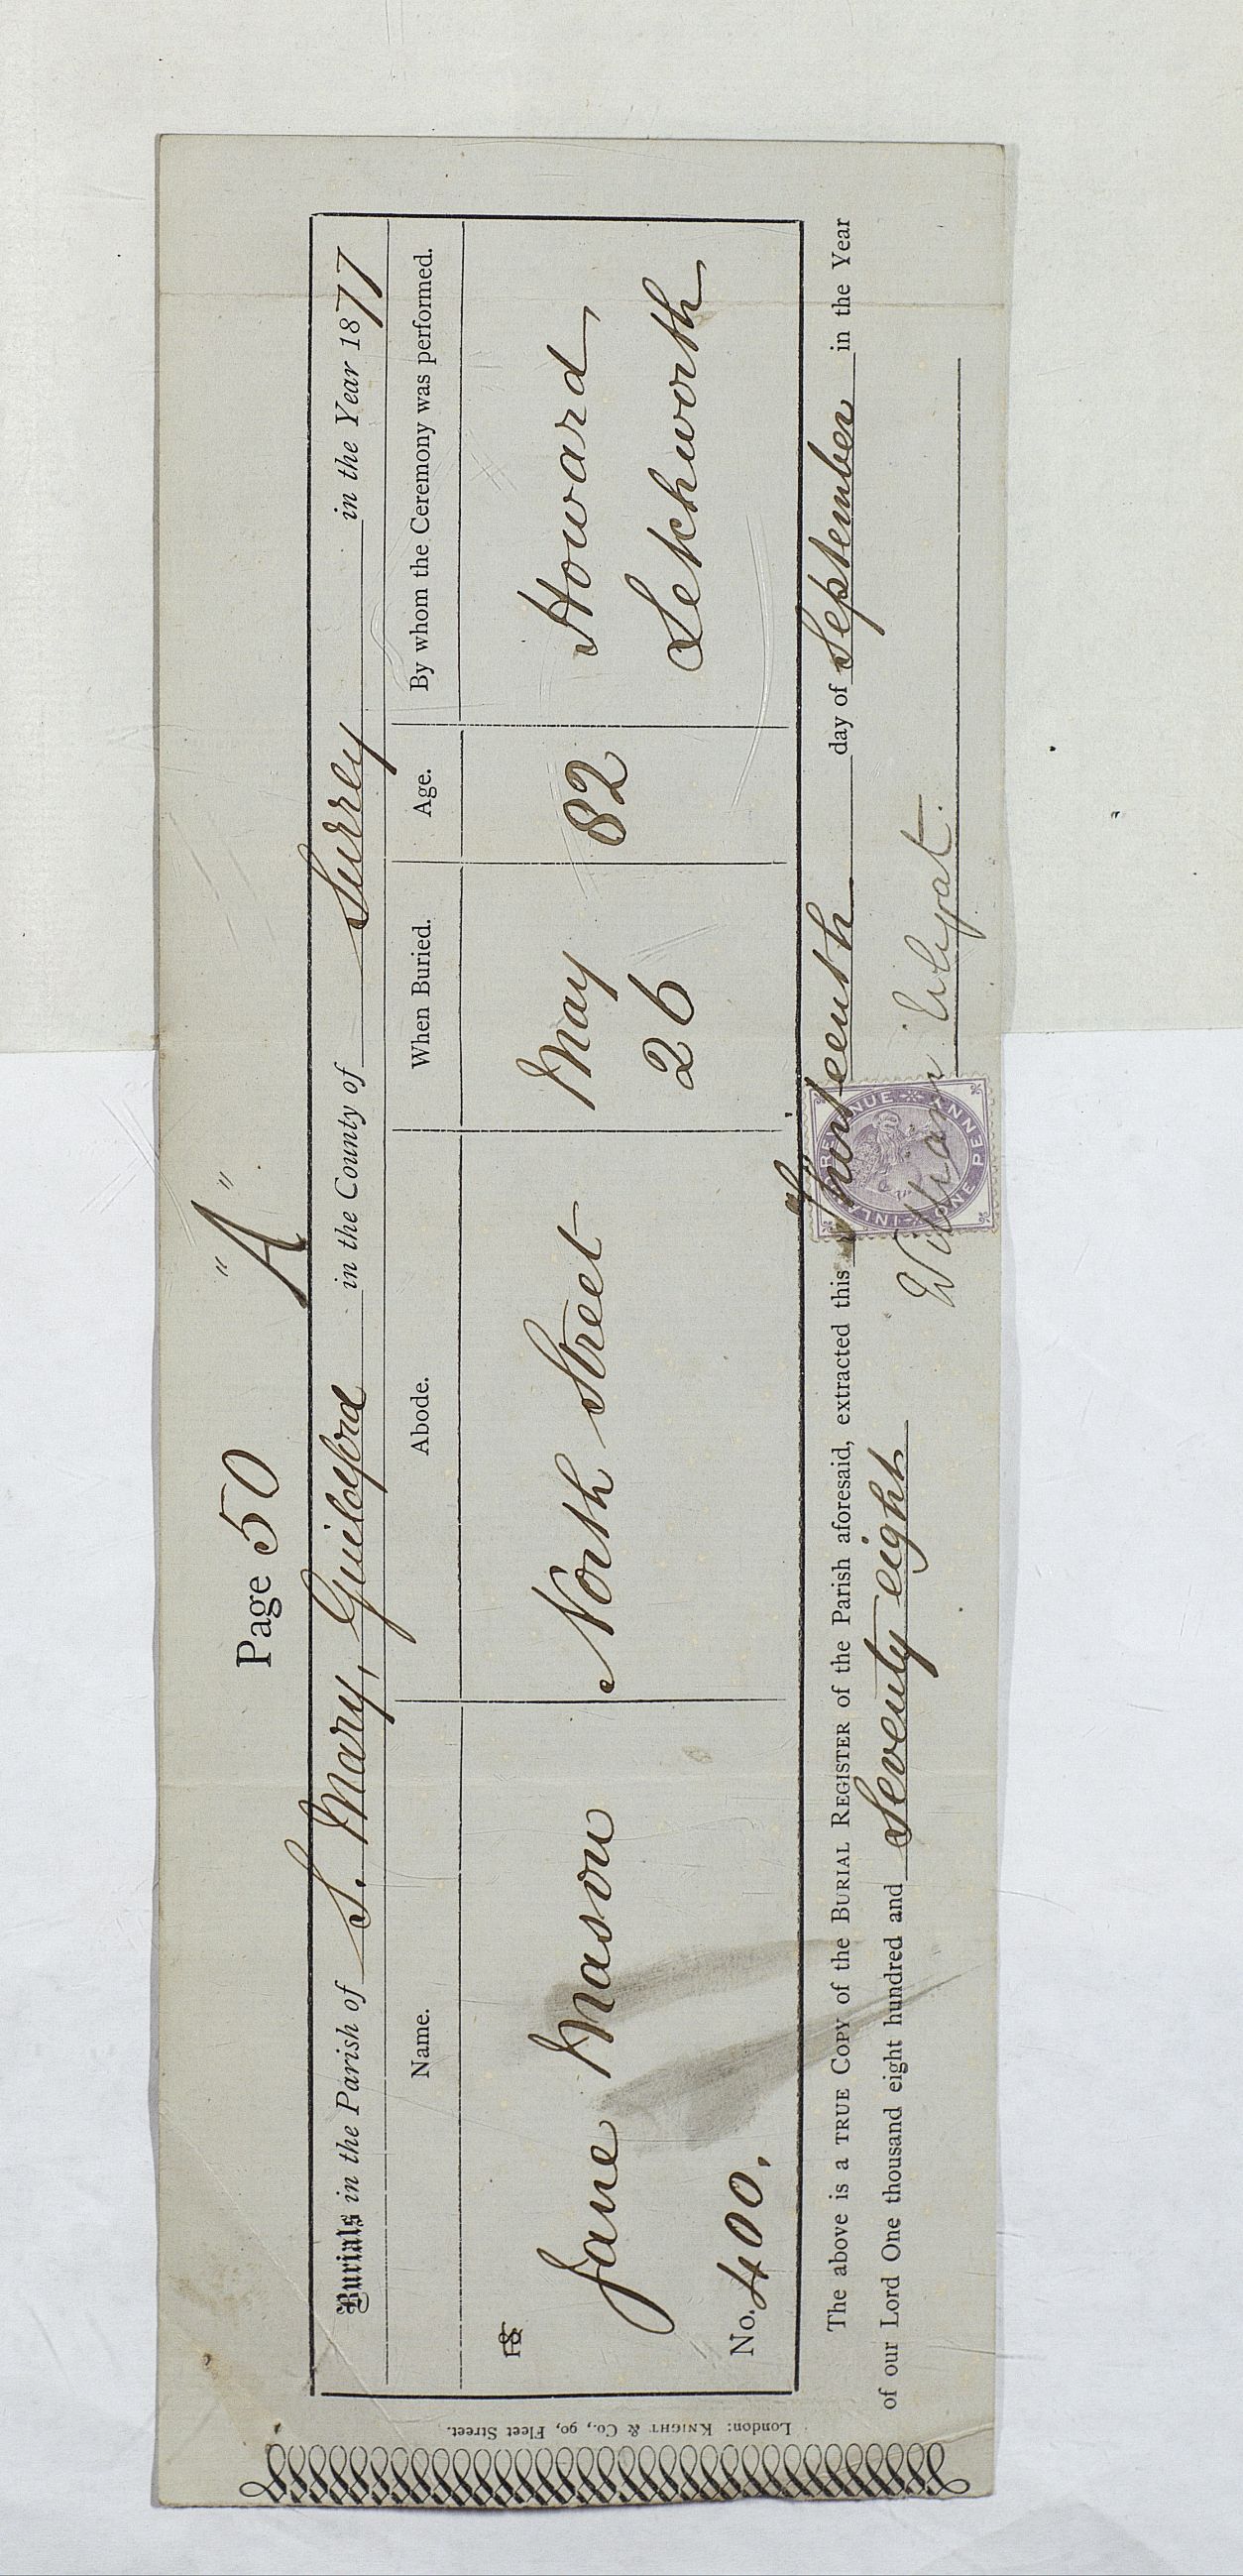 Page 50 "A"
Burials in the Parish of S. Mary, Guildford in the County of Surrey in the Year 1877
Name. Abode. When Buried. Age. By whom the Ceremony was performed.
18
Jane Mason North Street May 26 82 Howard Letchworth
No. 400.
The above is a TRUE COPY of the BURIAL REGISTER of the Parish aforesaid, extracted this day of September in the Year
of our Lord One thousand eight hundred and Seventy eight
William
INLAND REVENUE ONE PENNY
London: KNIGHT & Co., 90, Fleet Street.